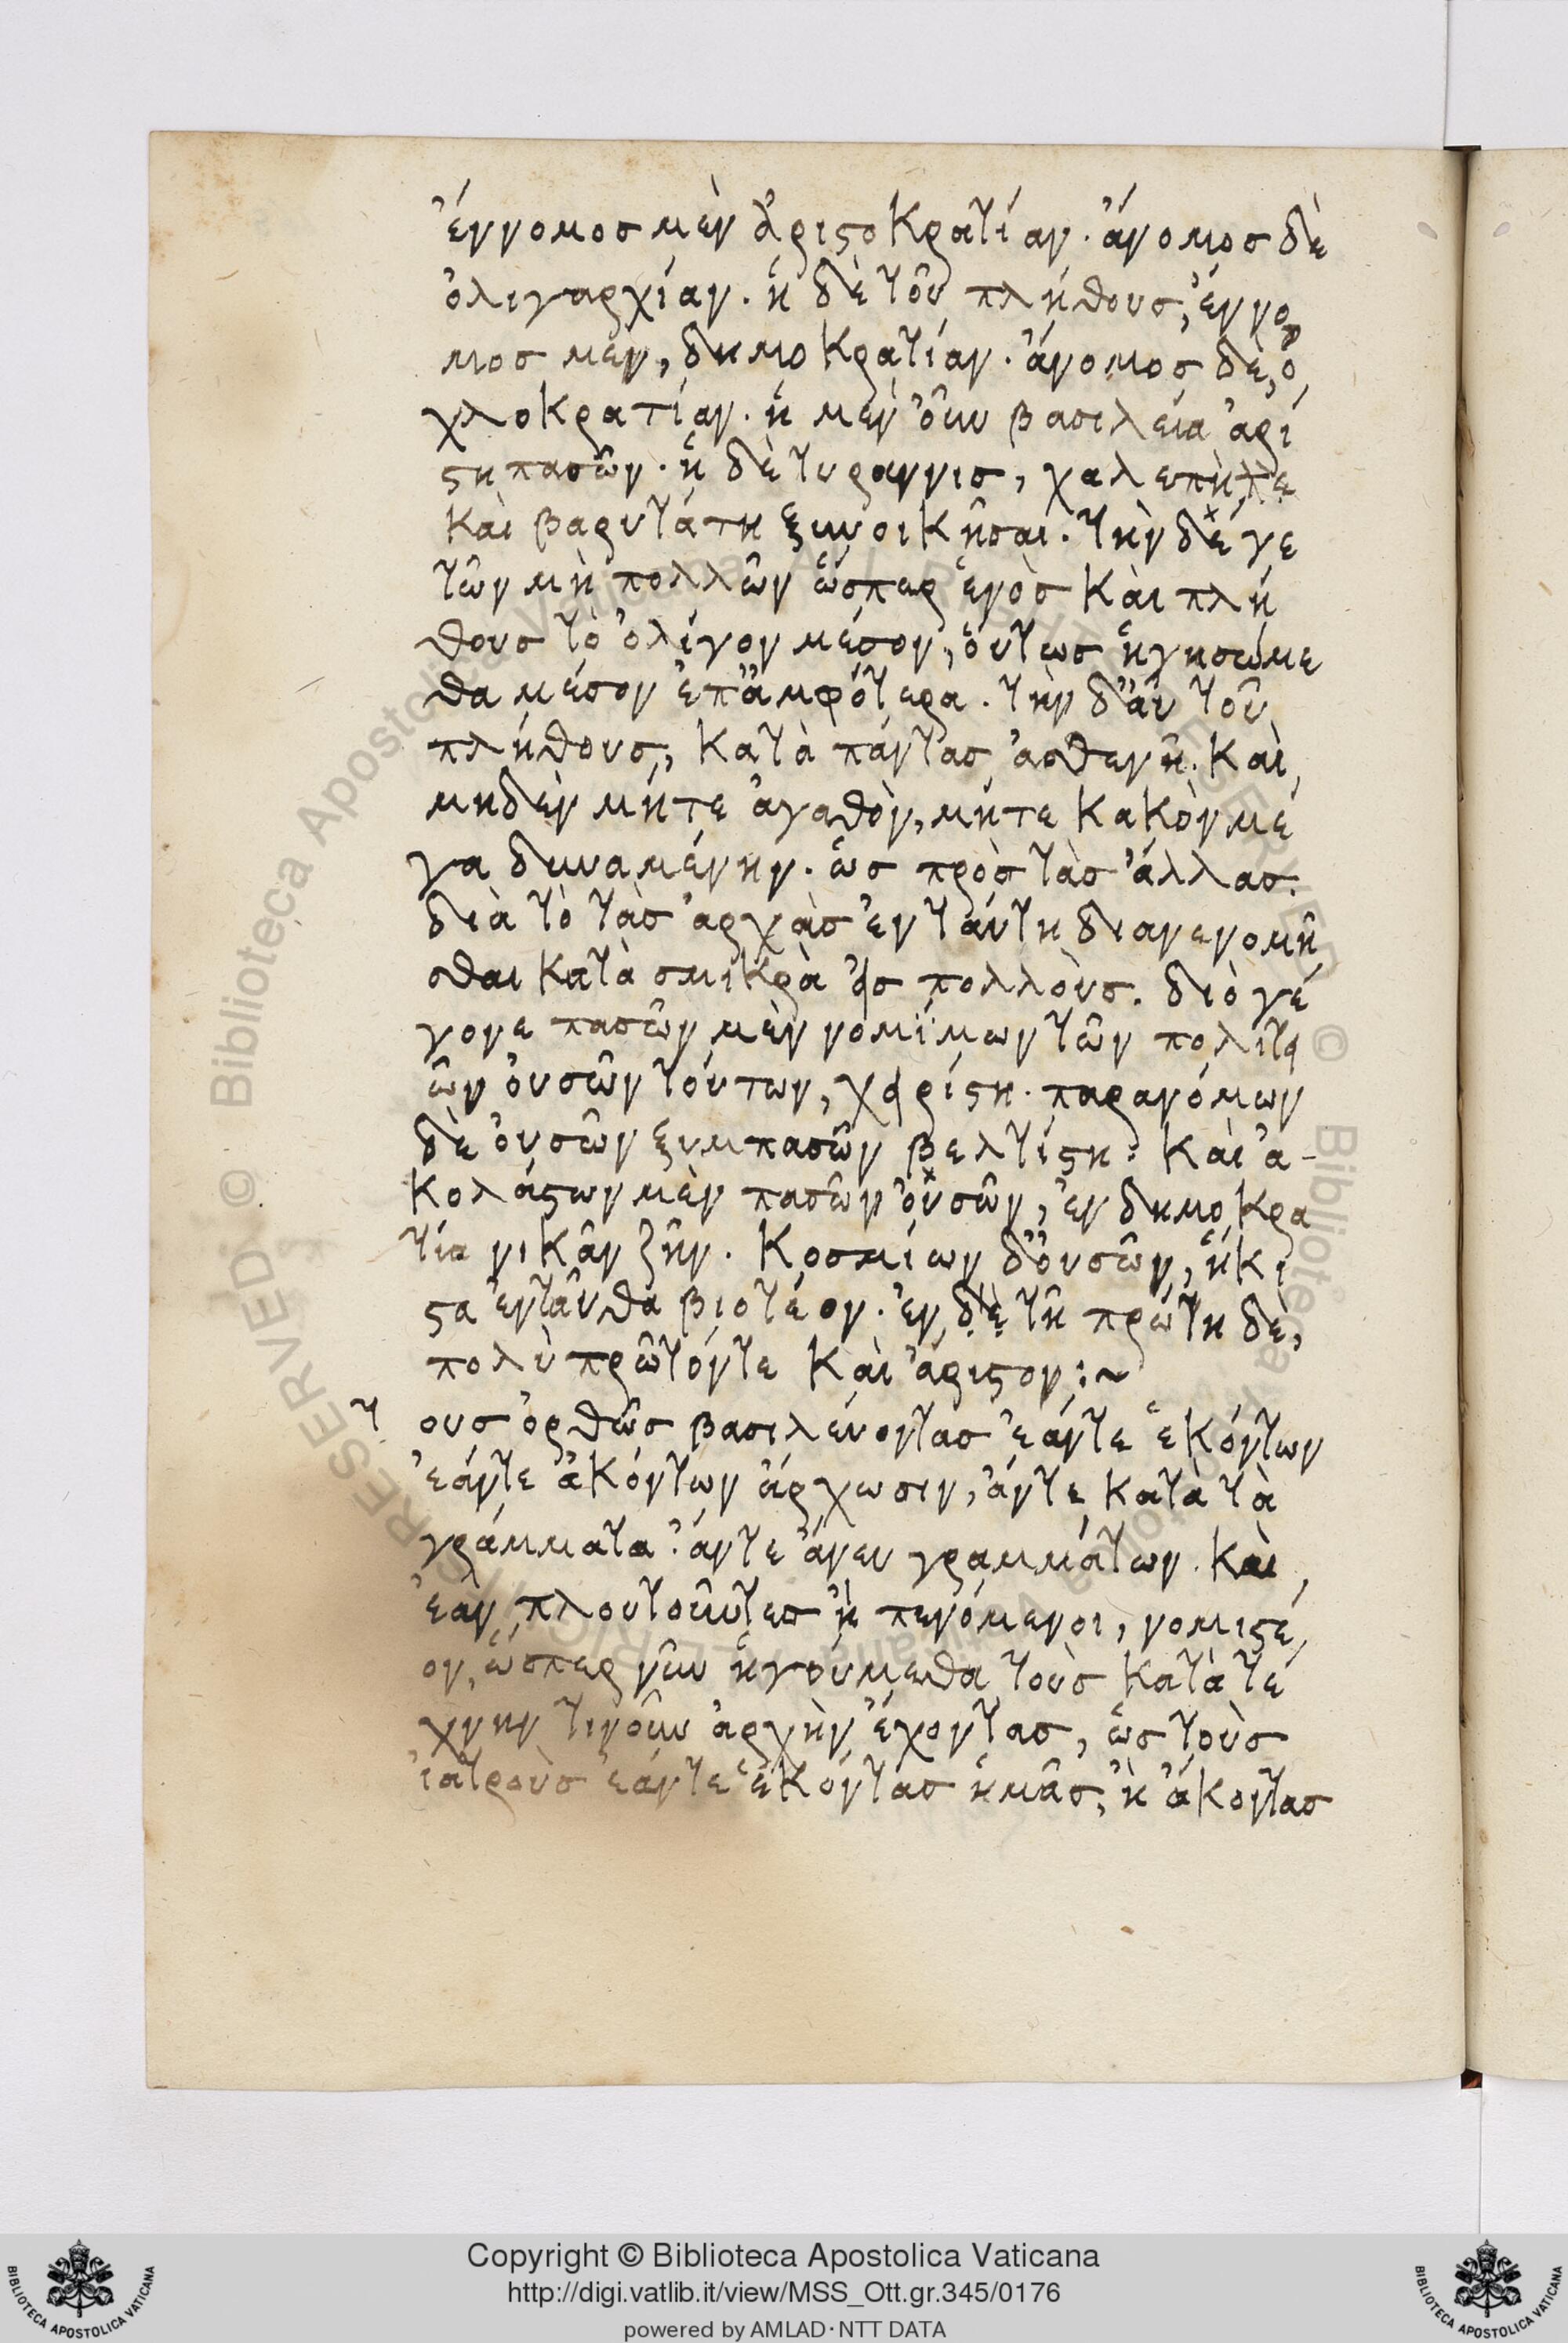 ἔννομοσ μὲν ἀριϛοκρατίαν. ἄνομοσ δὲ
ὀλιγαρχίαν. ἡ δὲ τοῦ πλήθουσ, ἔννο
μοσ μὲν, δημοκρατίαν. ἄνομοσ δὲ, ὀ
χλοκρατίαν. ἡ μὲν οὖν βασιλεία ἀρί
ϛη πασῶν. ἡ δὲ τυραννισ, χαλεπὴ τε
καὶ βαρυτάτη ξυνοικῆσαι. τὴν δέ γε
τῶν μὴ πολλῶν ὥσπερ ἑνὸσ καὶ πλή
θουσ τὸ ὀλίγον μέσον, οὕτωσ ἡγησώμε
θα μέσον ἐπ' ἀμφότερα. τὴν δ' αὖ τοῦ
πλήθουσ, κατὰ πάντασ ἀσθενῆ. καὶ
μηδὲν μήτε ἀγαθὸν, μήτε κακὸν μέ
γα δυναμένην. ὡσ πρὸσ τὰσ ἄλλασ.
διὰ τὸ τὰσ ἀρχὰσ ἐν ταύτη διανενομῆ
σθαι κατὰ σμικρὰ εἰσ πολλοὺσ. διὸ γέ
γονε πασῶν μὲν νομίμων τῶν πολιτει
ῶν οὐσῶν τούτων, χειρίϛη. παρανόμων
δὲ οὐσῶν ξυμπασῶν βελτίϛη: καὶ ἀ-
κολάϛων μὲν πασῶν οὐσῶν, ἐν δημοκρα
τία νικᾶν ζῆν. κοσμίων δ' οὐσῶν, ἥκι
ϛα ἐνταῦθα βιοτέον. ἐν δὲ τῆ πρώτη δὲ,
πολὺ πρῶτόντε καὶ ἄριϛον:~
τ ουσ ὀρθῶσ βασιλεύοντασ ἐάντε ἑκόντων
ἐάντε ἀκόντων ἄρχωσιν, ἄντε κατὰ τὰ
γράμματα. ἄντε ἄνευ γραμμάτων. καὶ
ἐὰν πλουτοῦντεσ ἢ πενόμενοι, νομιϛέ
ον, ὥσπερ νῦν ἡγούμεθα τοὺσ κατὰ τέ
χνην τινοῦν ἀρχὴν ἔχοντασ, ὡσ τοὺσ
ἰατροὺσ ἐάντε ἑκόντασ ἡμᾶσ, ἢ ἄκοντασ
Copyright © Biblioteca Apostolica Vaticana
http://digi.vatlib.it/view/MSS_Ott.gr.345/0176
powered by AMLAD·NTT DATA